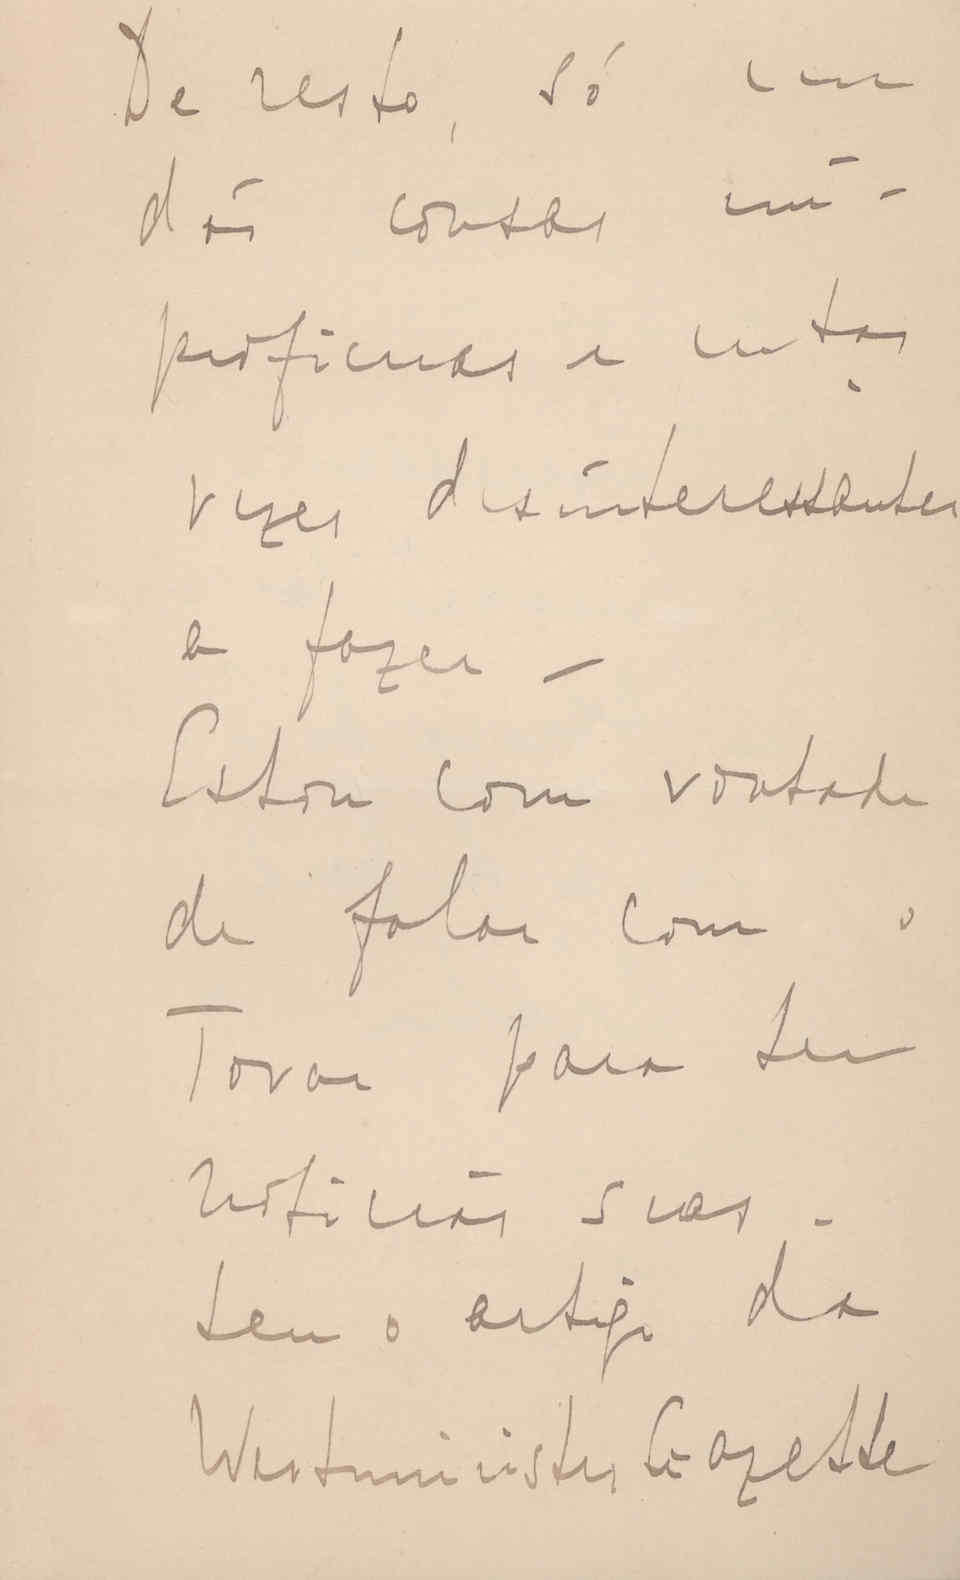 De resto, só me
dão cousas im-
proficuas e mtas
vezes desinteressantes
a fazer –
Estou com vontade
de falar com o
Tovar para ter
noticias suas.
tem o artigo da
Westminister Gazette